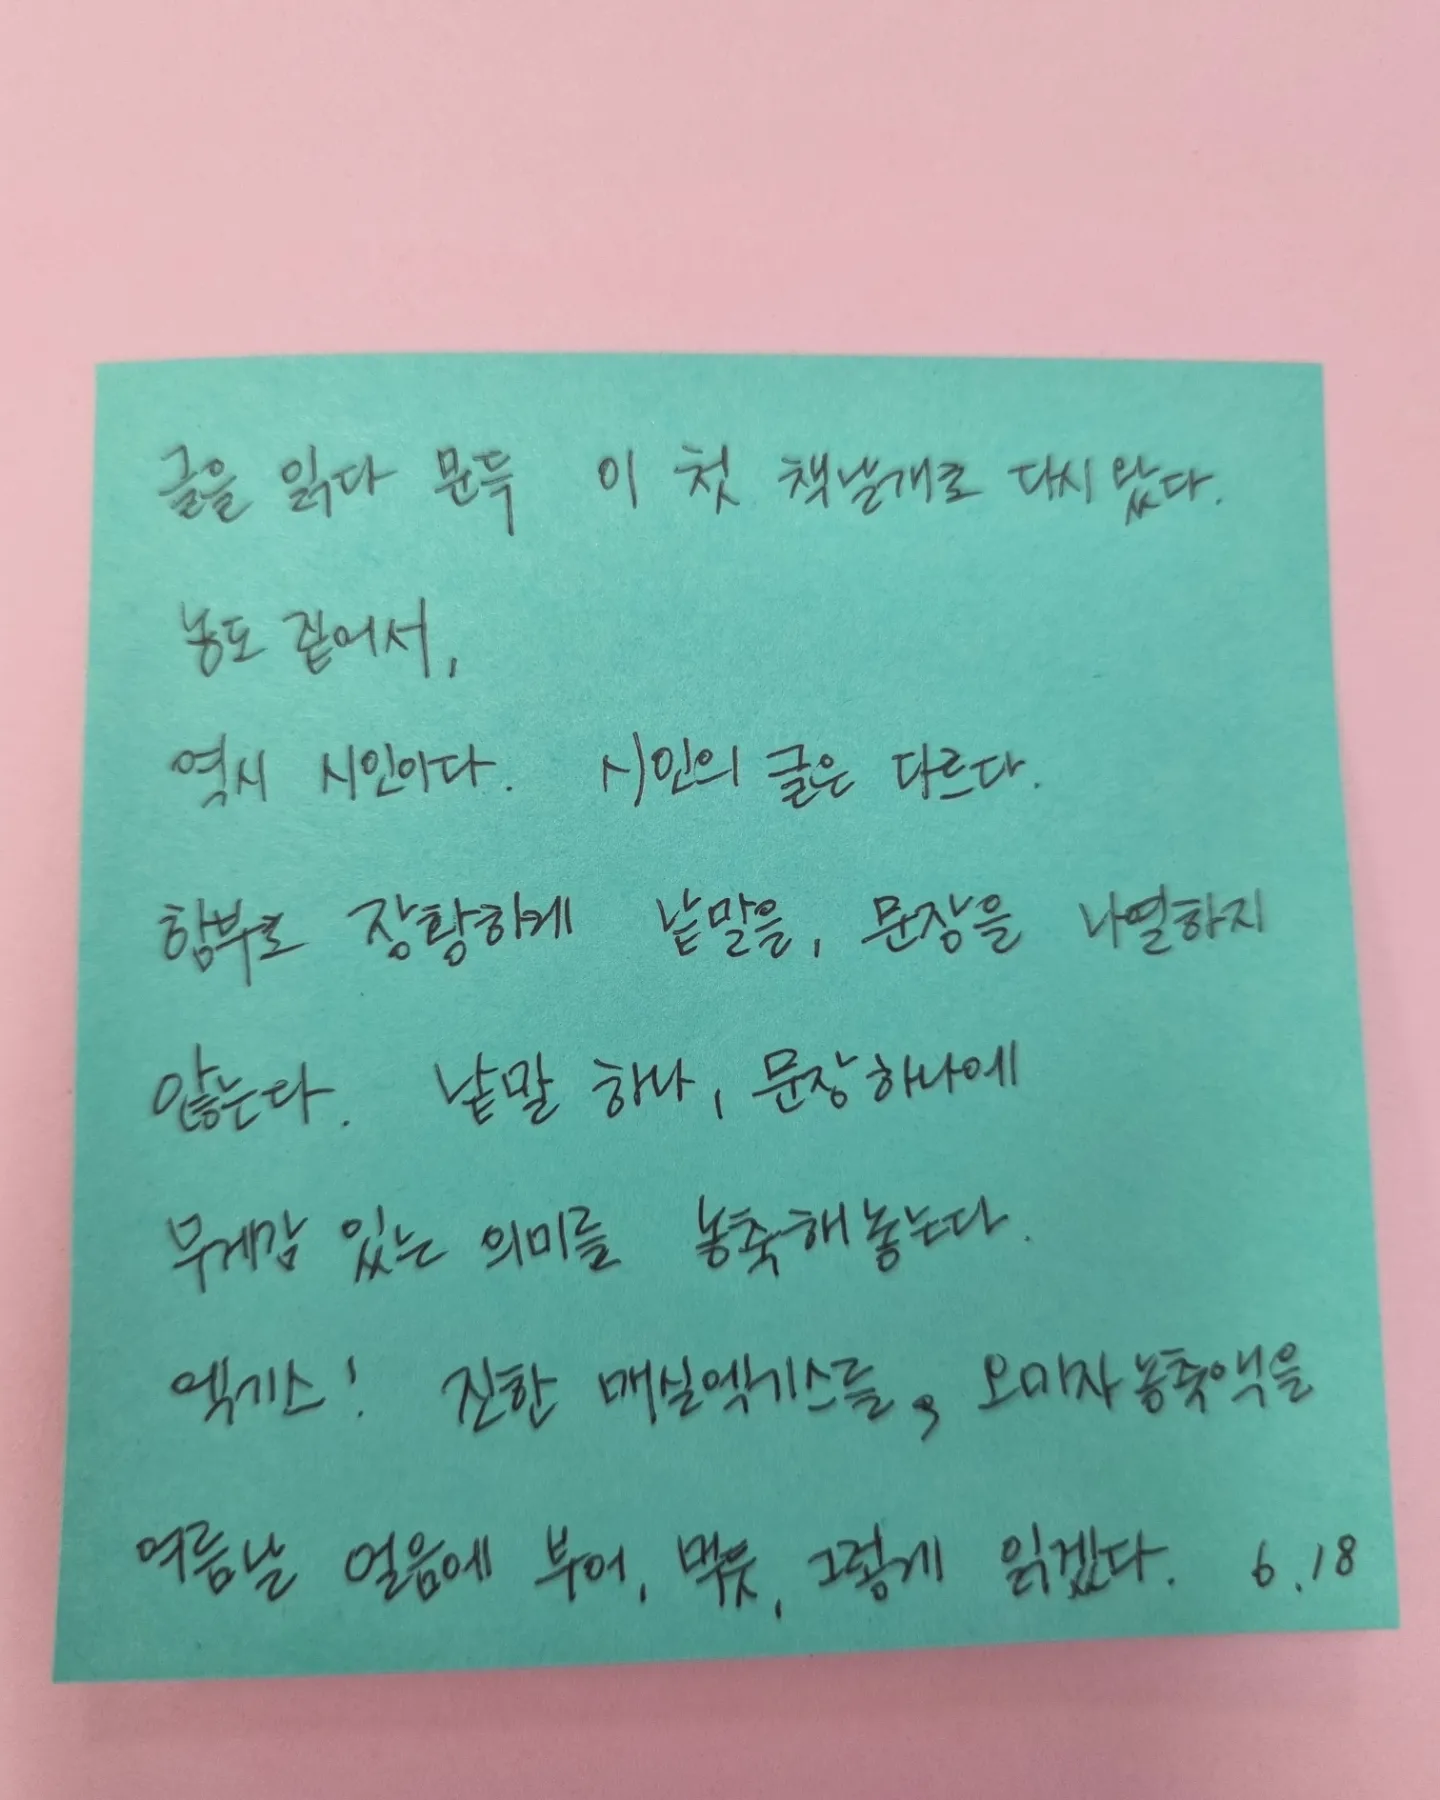 글을 읽다 문득 이 첫 책날개로 다시 왔다.
농도 짙어서,
역시 시인이다. 시인의 글은 다르다.
함부로 장황하게 낱말을, 문장을 나열하지
않는다. 낱말 하나, 문장 하나에
무게감 있는 의미를 농축해 놓는다.
엑기스! 진한 매실엑기스를, 오미자농축액을
여름날 얼음에 부어, 먹듯, 그렇게 읽겠다. 6.18